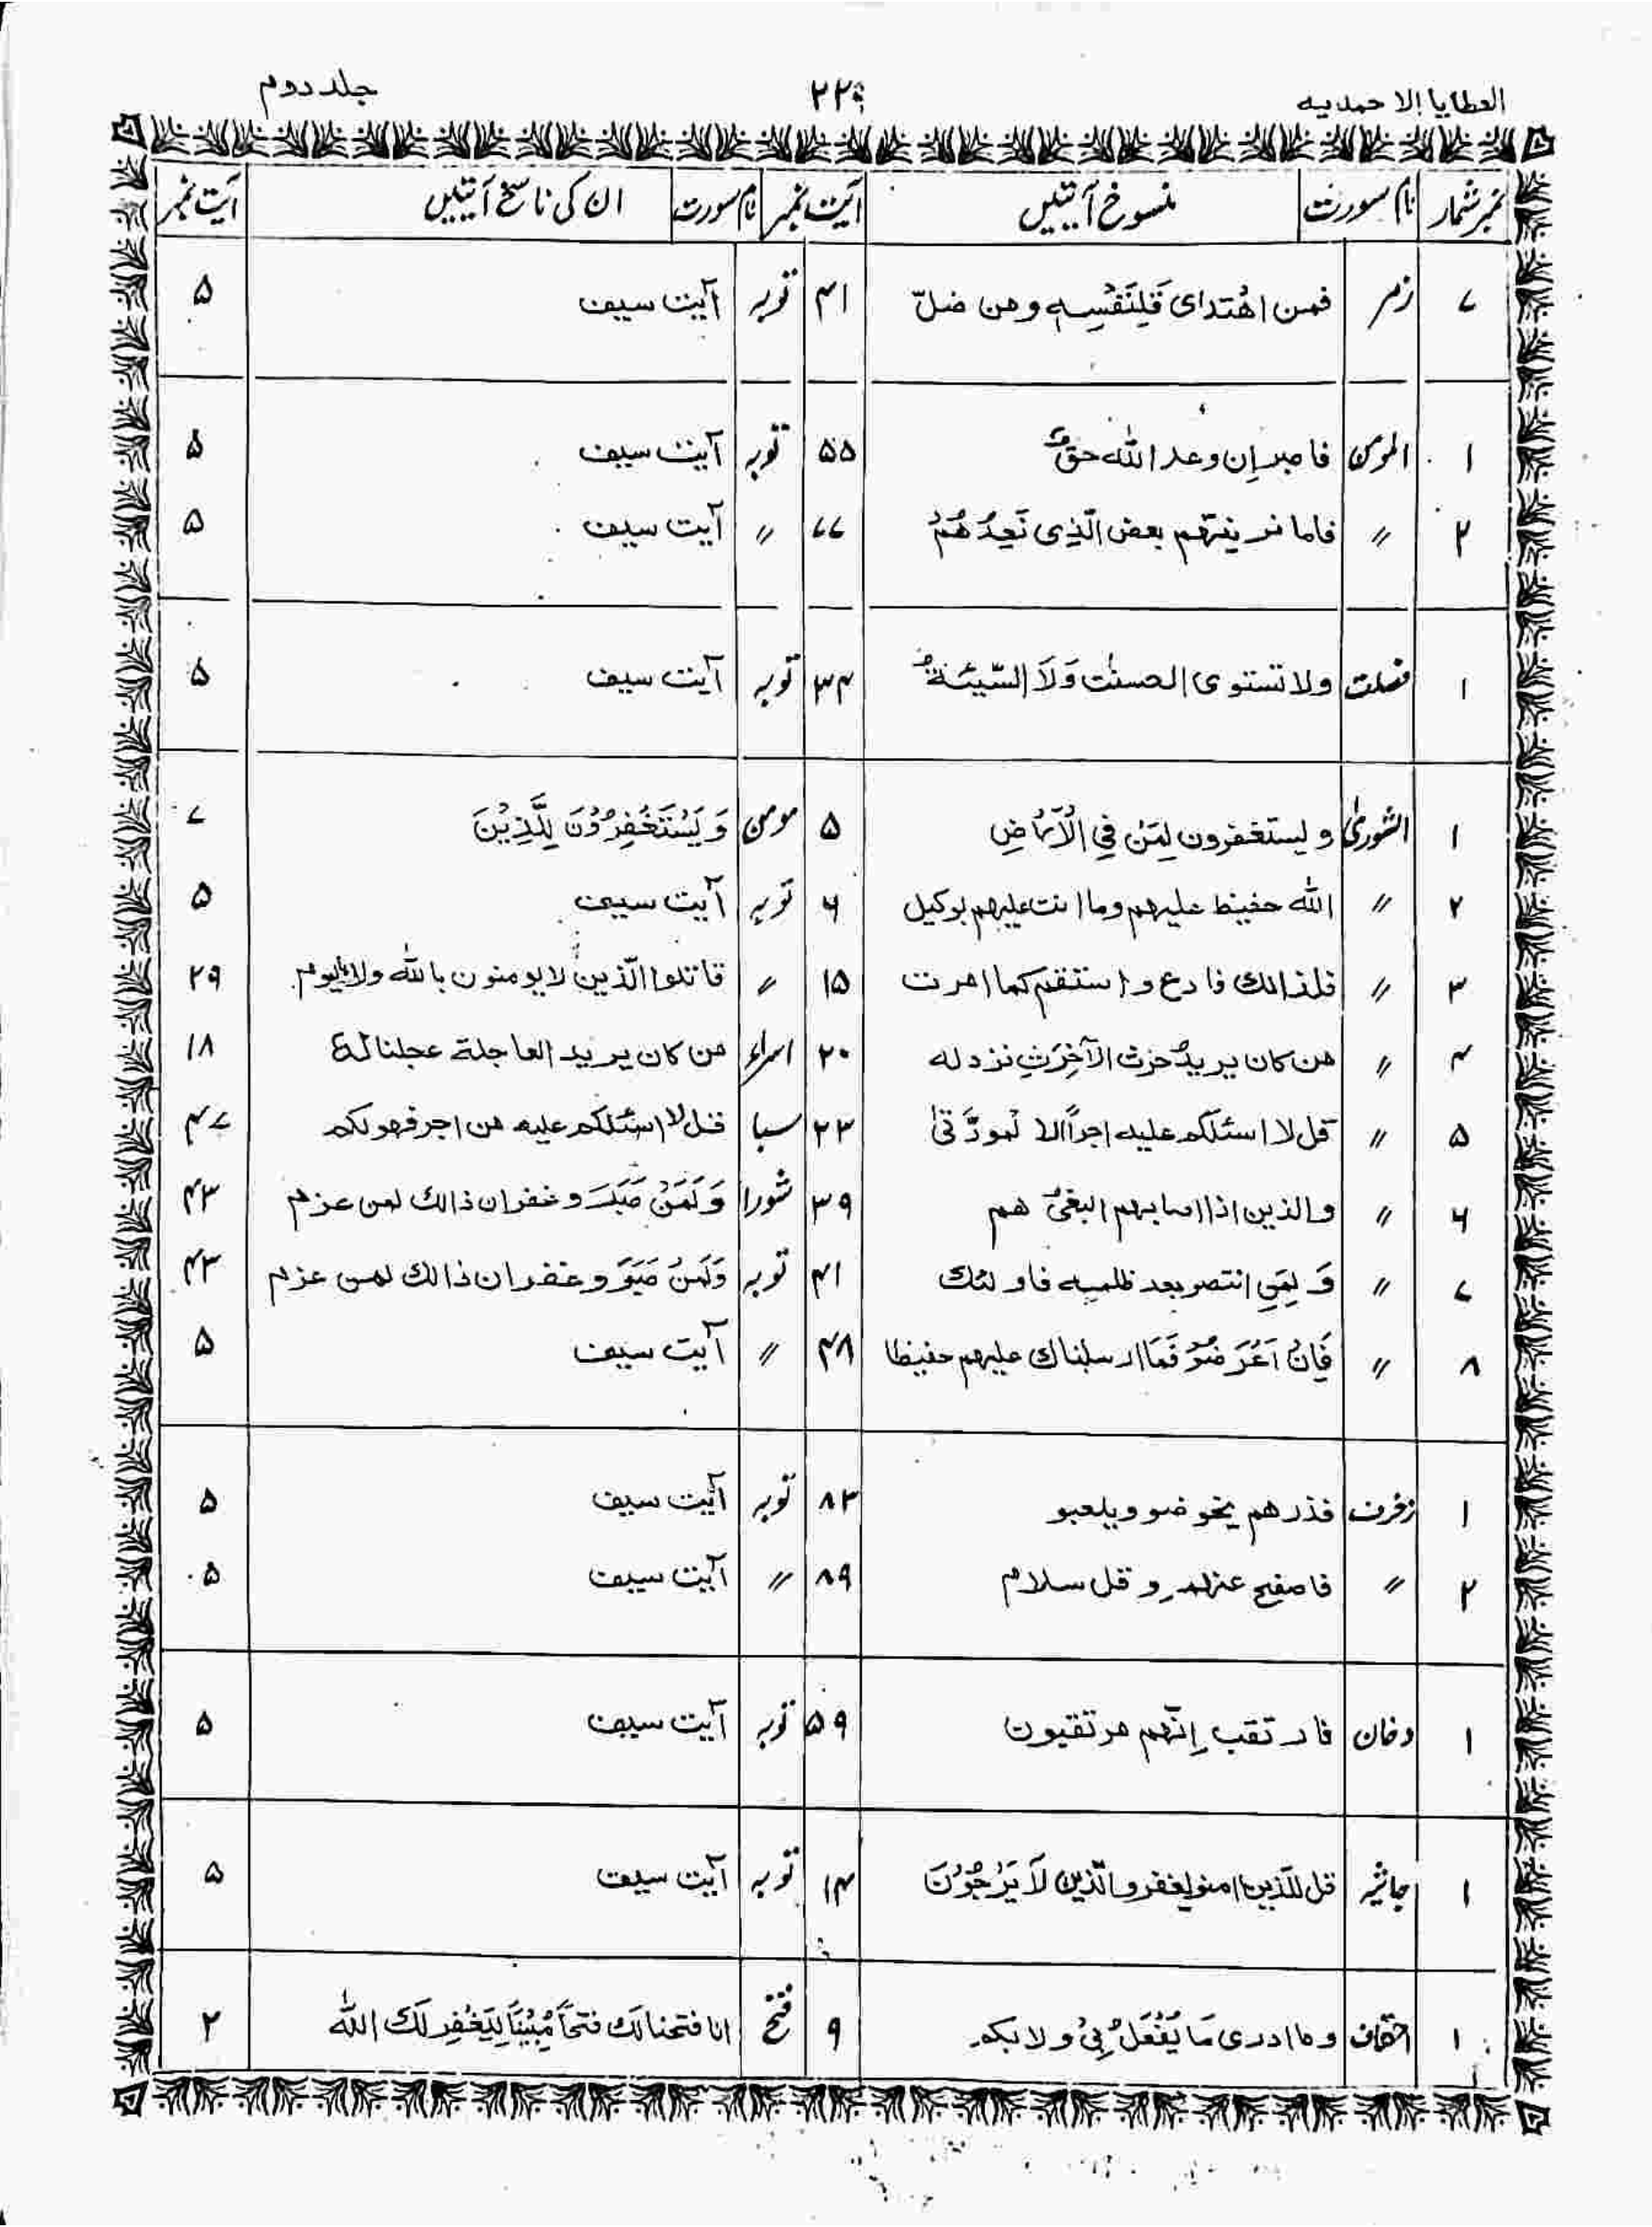 العطایا الاحمدیہ ۲۲۹ جلد دوم
نمبر شمار نام سورت منسوخ آیتیں آیت نمبر نام سورت ان کی ناسخ آیتیں آیت نمبر
۷ زمر فمن اھْتدای فَلِنَفْسِہٖ ومن ضلّ ۴۱ توبہ آیت سیف ۵
۱ المومن فاصبر اِن وعد اللّٰہ حقٌ ۵۵ توبہ آیت سیف ۵
۲ 〃 فاما نرینّھم بعض الّذِی نَعِدُ ھُمْ ۷۷ 〃 آیت سیف ۵
۱ فصلت ولا تستوی الحسنٰت وَلَا السّیئۃُ ۳۴ توبہ آیت سیف ۵
۱ الشوریٰ ویستغفرون لِمَنْ فِی الْاَرْضِ ۵ مومن وَیَسْتَغْفِرُوْنَ لِلَّذِیْنَ ۷
۲ 〃 اللّٰہ حفیظ علیہم وما انت علیہم بوکیل ۶ توبہ آیت سیف ۵
۳ 〃 فلذالک فادع واستقم کما امرت ۱۵ 〃 قاتلوا الّذین لا یومنون باللّٰہ ولا بالیوم ۲۹
۴ 〃 من کان یریدُ حرث الآخِرَتِ نزد لہ ۲۰ اسراء من کان یرید العاجلۃ عجلنا لہٗ ۱۸
۵ 〃 قل لا اسئلکم علیہ اجراً الا لمودَّتیٰ ۲۳ سبا قل لا اسئلکم علیہ من اجر فھولکم ۴۷
۶ 〃 والذین اذا اصابہم البغیٌ ھم ۳۹ شورا وَلَمَنْ صَبَرَ وغفر ان ذالک لمن عزم ۴۳
۷ 〃 وَ لِمَنِ انتصر بعد ظلمِہٖ فاولئک ۴۱ توبہ وَلَمَنْ صَبَرَ وغفر ان ذالک لمن عزم ۴۳
۸ 〃 فَاِنْ اَعْرَضُوْ فَمَا ارسلناک علیہم حفیظا ۴۸ 〃 آیت سیف ۵
۱ زخرف فذرھم یخوضو ویلعبو ۸۳ توبہ آیت سیف ۵
۲ 〃 فاصفح عنہم وقل سلام ۸۹ 〃 آیت سیف ۵
۱ دخان فارتقب اِنّھم مرتقبون ۵۹ توبہ آیت سیف ۵
۱ جاثیہ قل للّذین امنو یغفرو الّذین لَا یَرْجُوْنَ ۱۴ توبہ آیت سیف ۵
۱ احقاف وما ادری مَا یُفْعَلُ بِیْ ولا بکم ۹ فتح انا فتحنا لَکَ فتحاً مُّبِیْنَاً لِیَغْفِرَ لَکَ اللّٰہ ۲